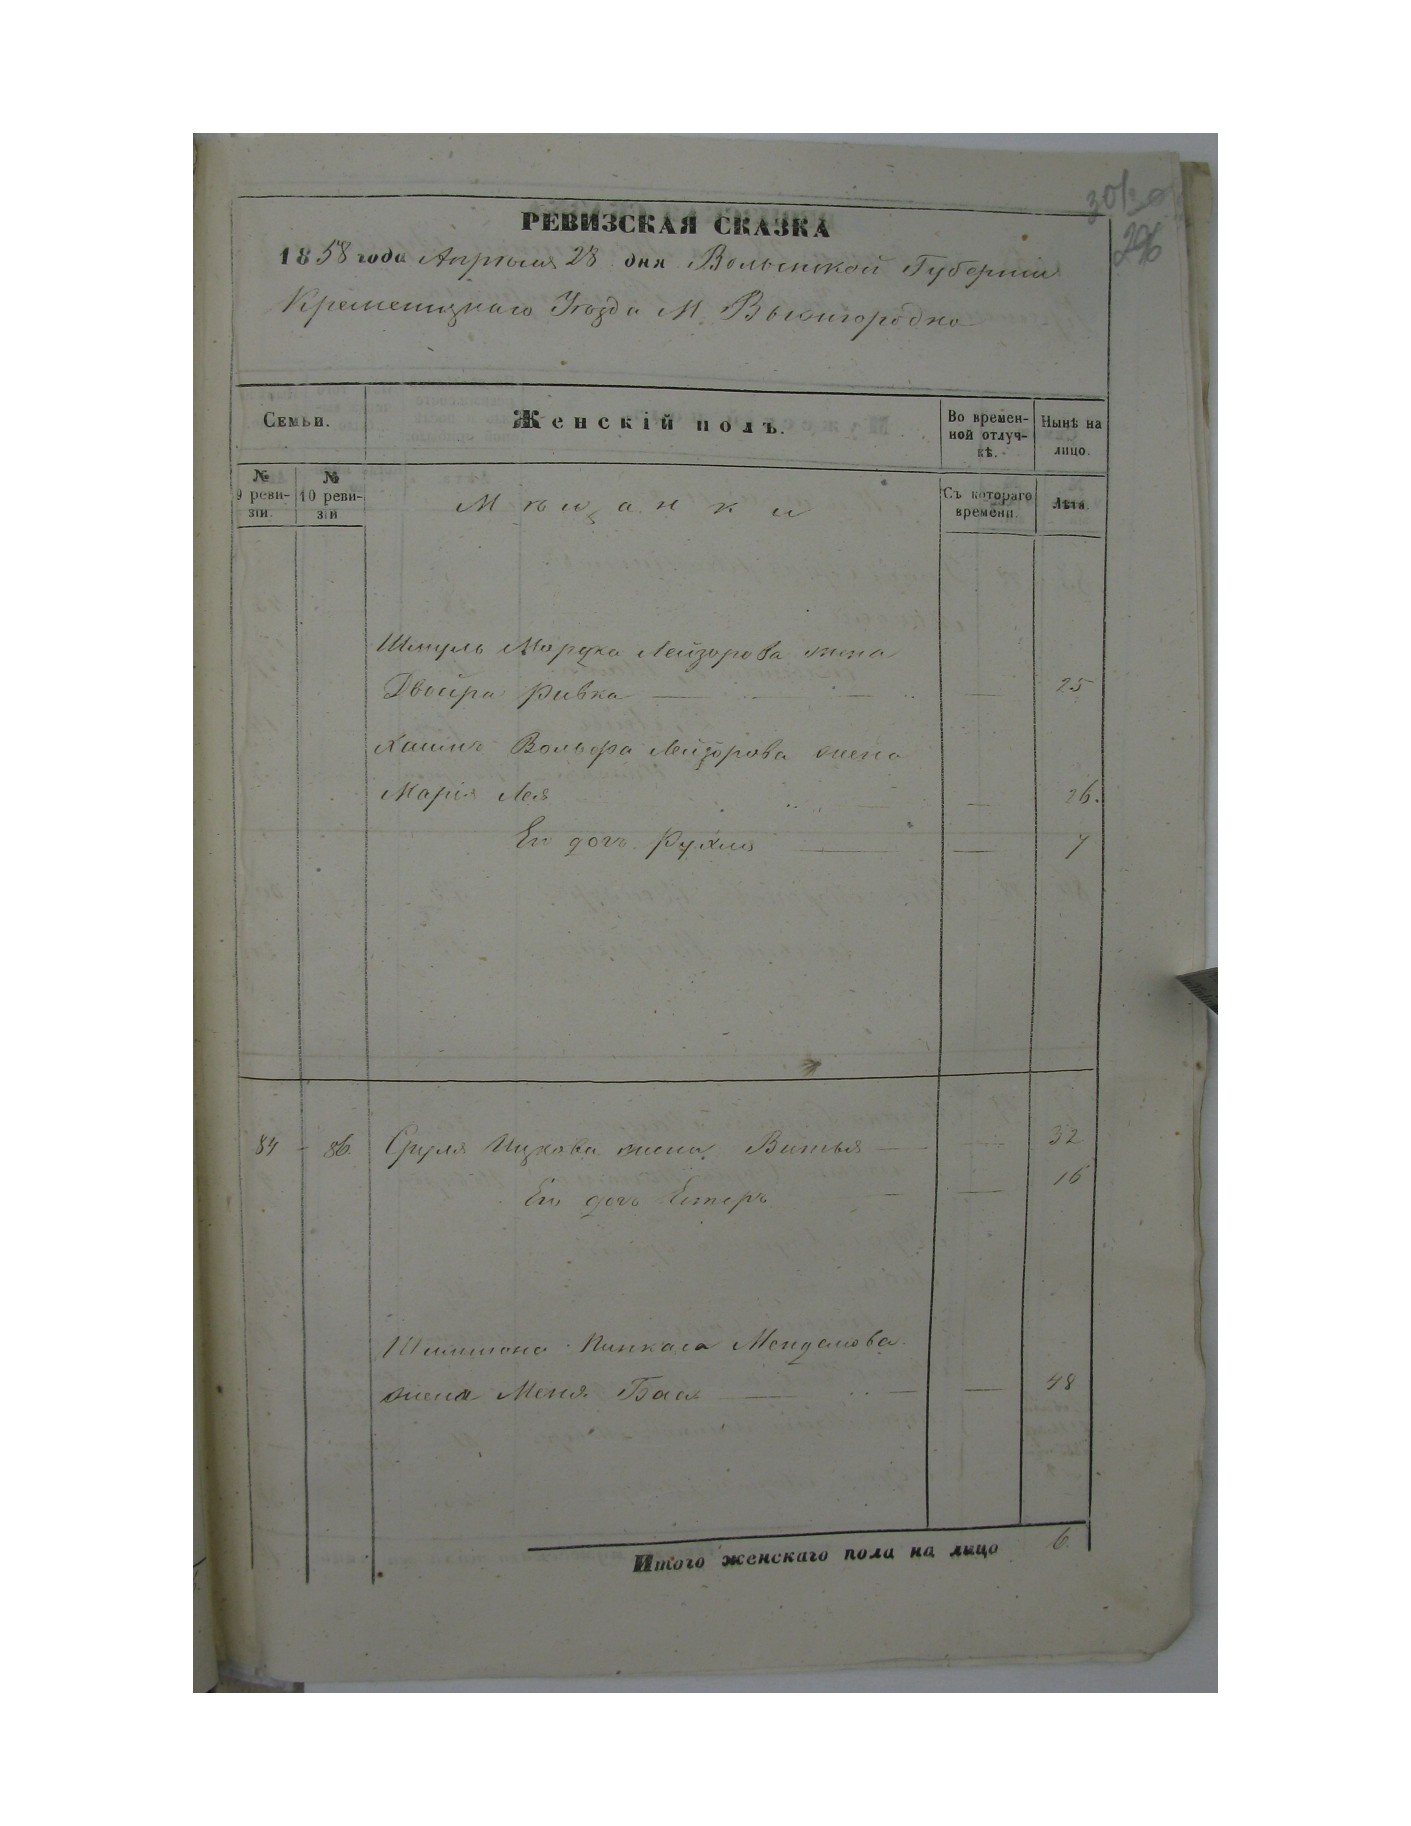 РЕВИЗСКАЯ СКАЗКА
1858 года Апреля 28 дня Волынской Губернии
Кременецкаго Уезда М. Вышгородка
Семьи. Женскій полъ. Во времен-
ной отлуч-
кѣ. Нынѣ на
лицо.
№
9 реви-
зіи. №
10 реви-
зіи Мѣщанки Съ котораго
времени. Лѣта.
Шмуль Мордка Лейзорова жена
Двойра Ривка — — 25
Хаимъ Вольфа Лейзорова жена
Марія Лея — — 26.
Его дочь Рухля — — 7
84 - 86 Сруля Ицкова жена Витья — — 32
Его дочь Естеръ — — 16
Шимшона Пинкаса Менделова
жена Меня Бася — — 48
Итого женскаго пола на лицо 6